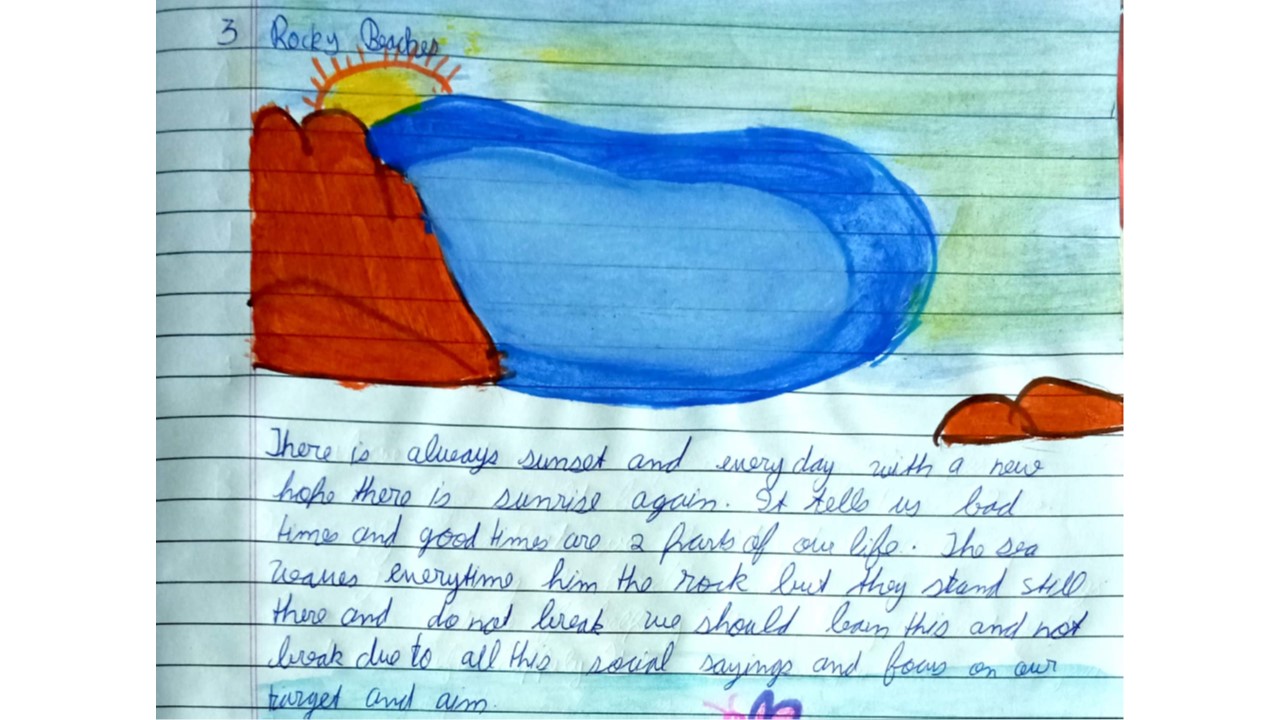 3 Rocky Beaches
There is always sunset and everyday with a new
hope there is sunrise again. It tells us bad
times and good times are 2 parts of our life. The sea
waves everytime him the rock but they stand still
there and do not break we should learn this and not
break due to all this social sayings and focus on our
target and aim.